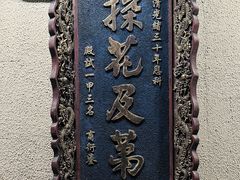 清光緒三十年恩科
探花及第
殿試一甲三名 商衍鎏